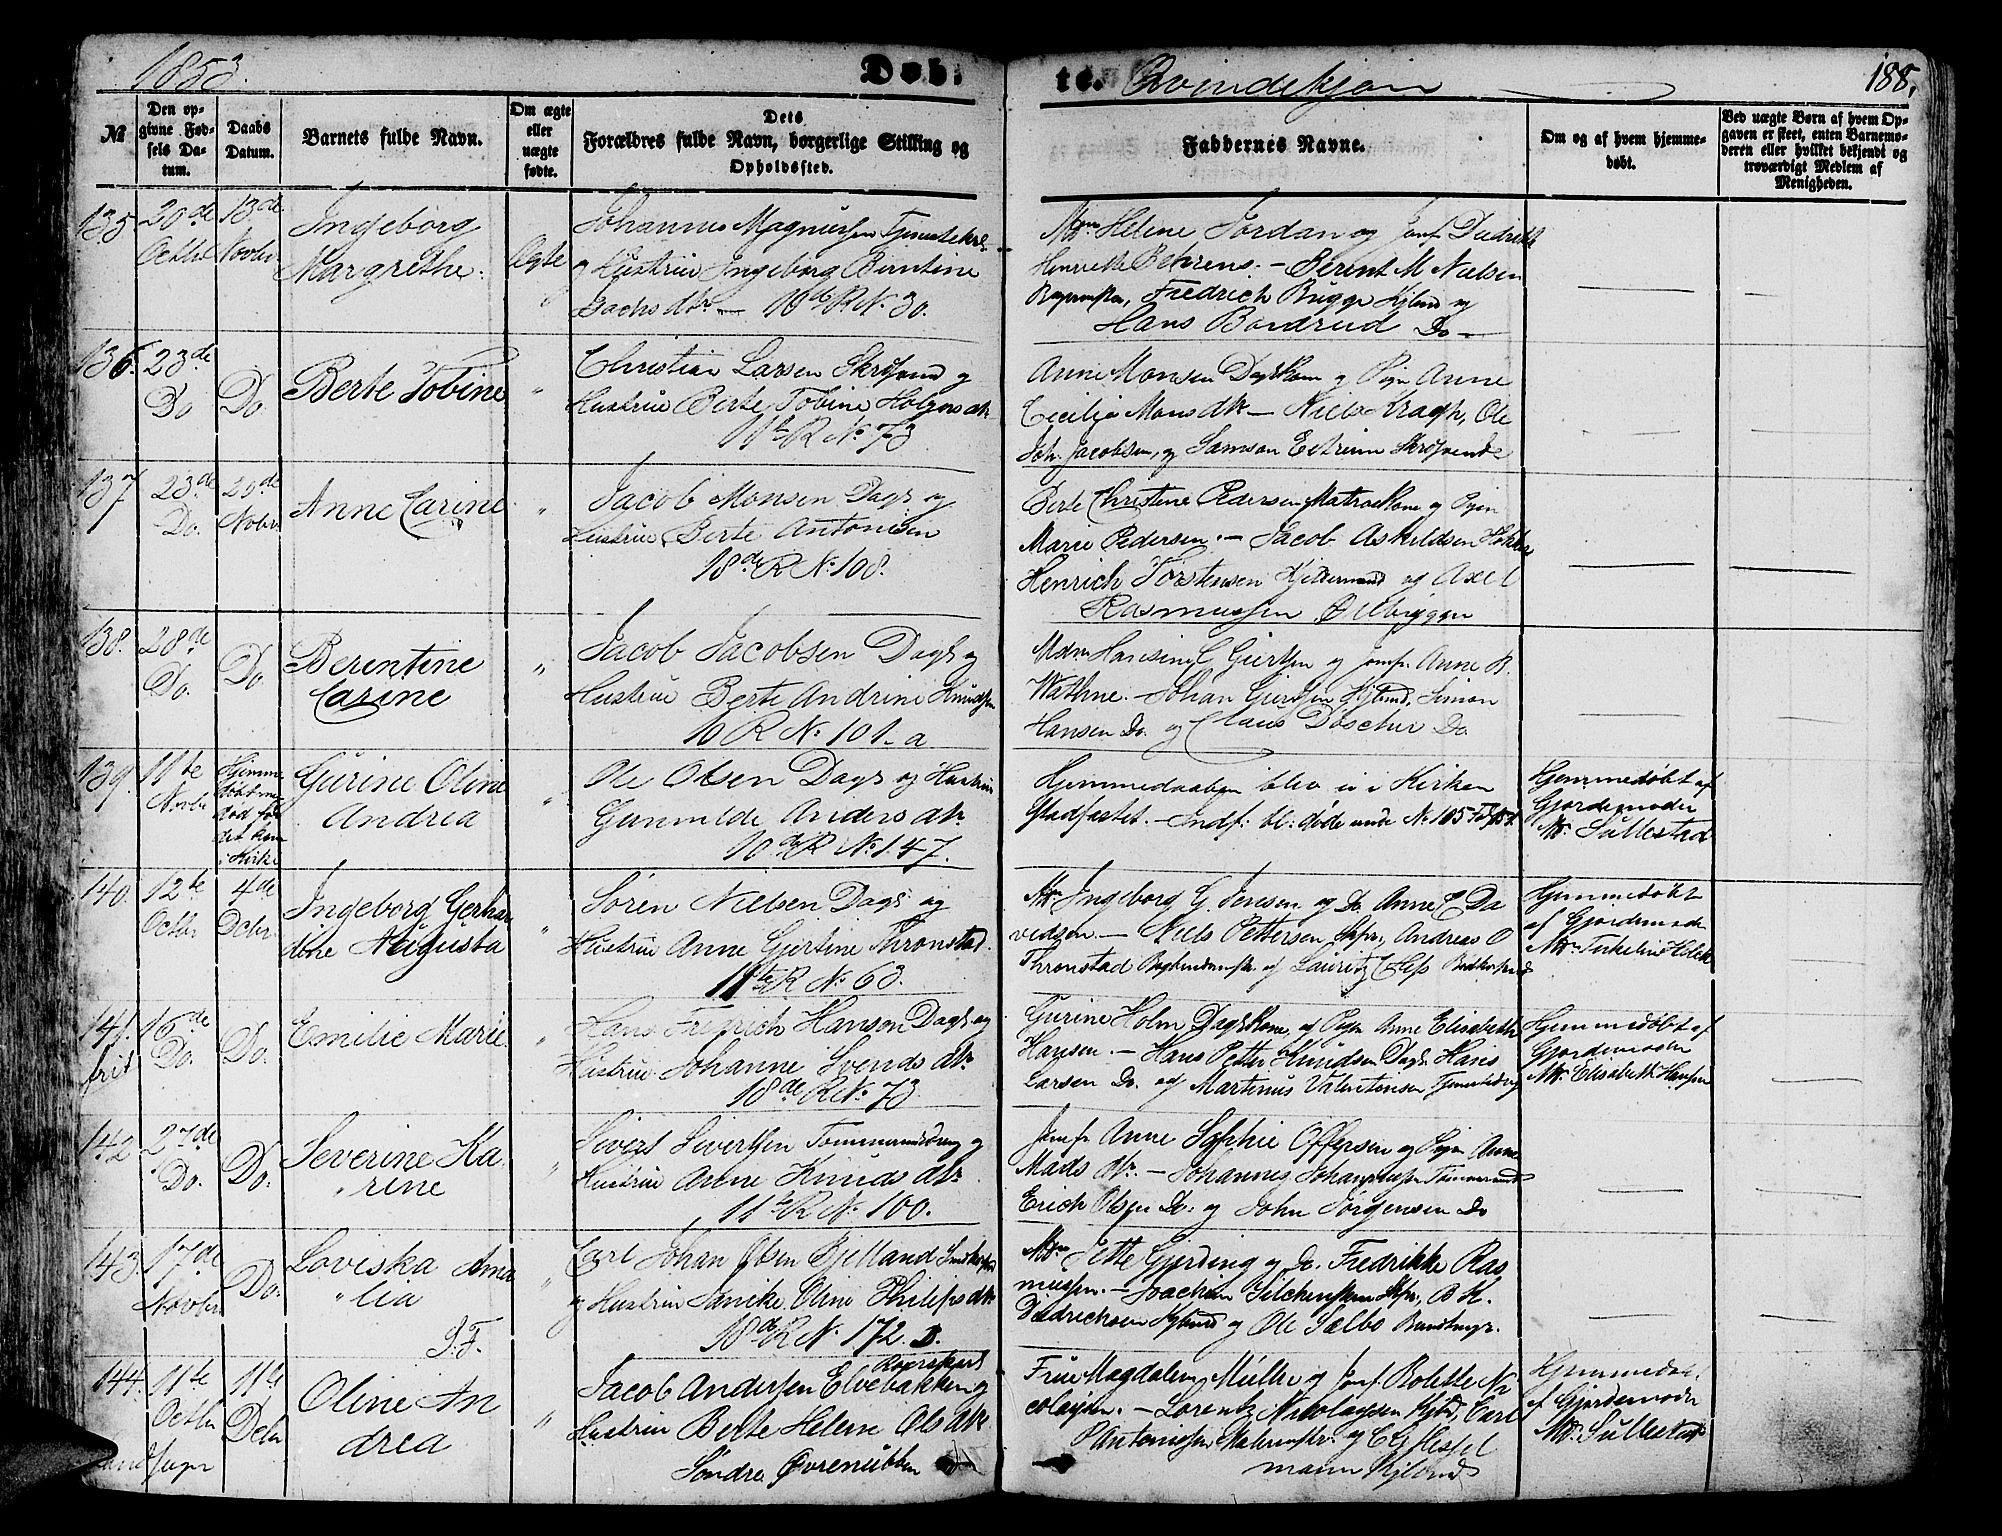 1853.
Døb-
te. Qvindekjøn
188.
№
Den op-
givne Fød-
sels Da-
tum.
Daabs
Datum.
Barnets fulde Navn.
Om ægte
eller
uægte
fødte.
Dets
Forældres fulde Navn, borgerlige Stilling og
Opholdssted.
Faddernes Navne.
Om og af hvem hjemme-
døbt.
Ved uægte Børn af hvem Op-
gaven er skeet, enten Barnemo-
deren eller hvilket bekjendt og
troværdigt Medlem af
Menigheden.
135
20de
Octbr
13de
Novbr
Ingeborg
Margrethe.
Ægte
Johannes Magnussen
og Hustrue Ingeborg Berntine
Sachsdtr. — 10de R № 30.
Mdm Helene Jordan og Jomf. Didrikke
Henriette Behrens. — Berent M Nielsen
Fredrich Bugge Kjbmd og
Hans Bordrud Do —
136.
23de
Do
Do.
Berte Tobine
"
Christian Larsen og
Hustrue Berte Tobine Holgersdtr
11te R № 73
Anne Monsen Dags Kone og Pign Anne
Cecilie Monsdtr — Niels Kragh, Ole
Joh. Jacobsen, og Samson
137
23de
Do.
20de
Novbr.
Anne Carine
"
Jacob Monsen Dags og
Hustrue Berte Antonisen
18de R № 108.
Berte Christine Pedersen Matros Kone og Pigen
Marie Pedersen. — Jacob Askildsen
Henrich Torstensen og Axel
Rasmussen
138.
28de
Do.
Do.
Berentine
Carine
"
Jacob Jacobsen Dags og
Hustrue Berte Andrine Knudsen
10 R № 101. a
Mdm Hansine C Giertsen og Jomfr. Anne B.
Wathne. — Johan Giertsen Kjbmd, Simon
Hansen Do. og Claus Döscher Do.
139.
11te
Novbr
Hjemme-
døbt men
død før
det kom
i Kirke
Gurine Oline
Andrea
"
Ole Olsen Dags og Hustrue
Gunnilde Andersdtr.
10de R № 147.
Hjemmedaaben blev ei i Kirken
Stadfæstet. — Indf: bl: døde under № 105
Hjemmedøbt af
Gjordemoder
M. Sullestad
140.
12te
Octbr
4de
Decbr.
Ingeborg Gerhar
dine Augusta
"
Søren Nielsen Dags og
Hustrue Anne Gurtine Thronstad.
11te R № 63.
Mdm Ingeborg G. Jensen og Do Anne E Da
vidsen. — Niels Pettersen Skpr., Andreas O
Thronstad og Lauritz C Hess
Hjemmedøbt
af Gjordemoder
141.
frit
16de
Do.
Do.
Emilie Marie
"
Hans Fredrich Hanson Dags og
Hustrue Johanne Svendsdtr.
18de R № 73
Gurine Holm Dags Kone og Pign Anne Elisabeth
Hansen. — Hans Petter Knudsen Dags Hans
Larsen Do. og Martinus Valentinsen
Hjemmedøbt af
Gjordemoder
M. Elisabeth Hansen
142
27de
Do.
Do.
Severine Ka
rine
"
Sivert Sivertsen Tømmermdreng og
Hustrue Arene Knudsdtr.
11te R № 100.
Jomfr Anne Sophie Offersen og Pign Anne
Madsdtr. — Johannes Johannessen Tømmermd
Erich Olsen Do. og John Jørgensen Do
143.
17de
Novbr
Do.
Loviska Ama
lia
S.F.
"
Carl Johan Olsen Bjelland
og Hustrue Janike Oline Philipsdtr
18de R № 172. B.
Mdm Jette Gjerding og Do. Fredrikke Ras
mussen. — Joachim Skpr., B K.
Didrichsen Kjbmd og Ole Sælbo
144.
Landsogn
11te
Octbr
11te
Decbr
Oline An
drea
"
Jacob Andersen Elvebakken og
Hustrue Berte Helene Olsdtr
Søndre Øvrenubben
Frue Magdalene Müller og Jomf Bolette Ni
colaysen. — Lorentz Nicolaysen Kjbmd, Carl
P Antonissen og C G Hessel
mann Kjbmd
Hjemmedøbt
af Gjordemoder
M. Sullestad